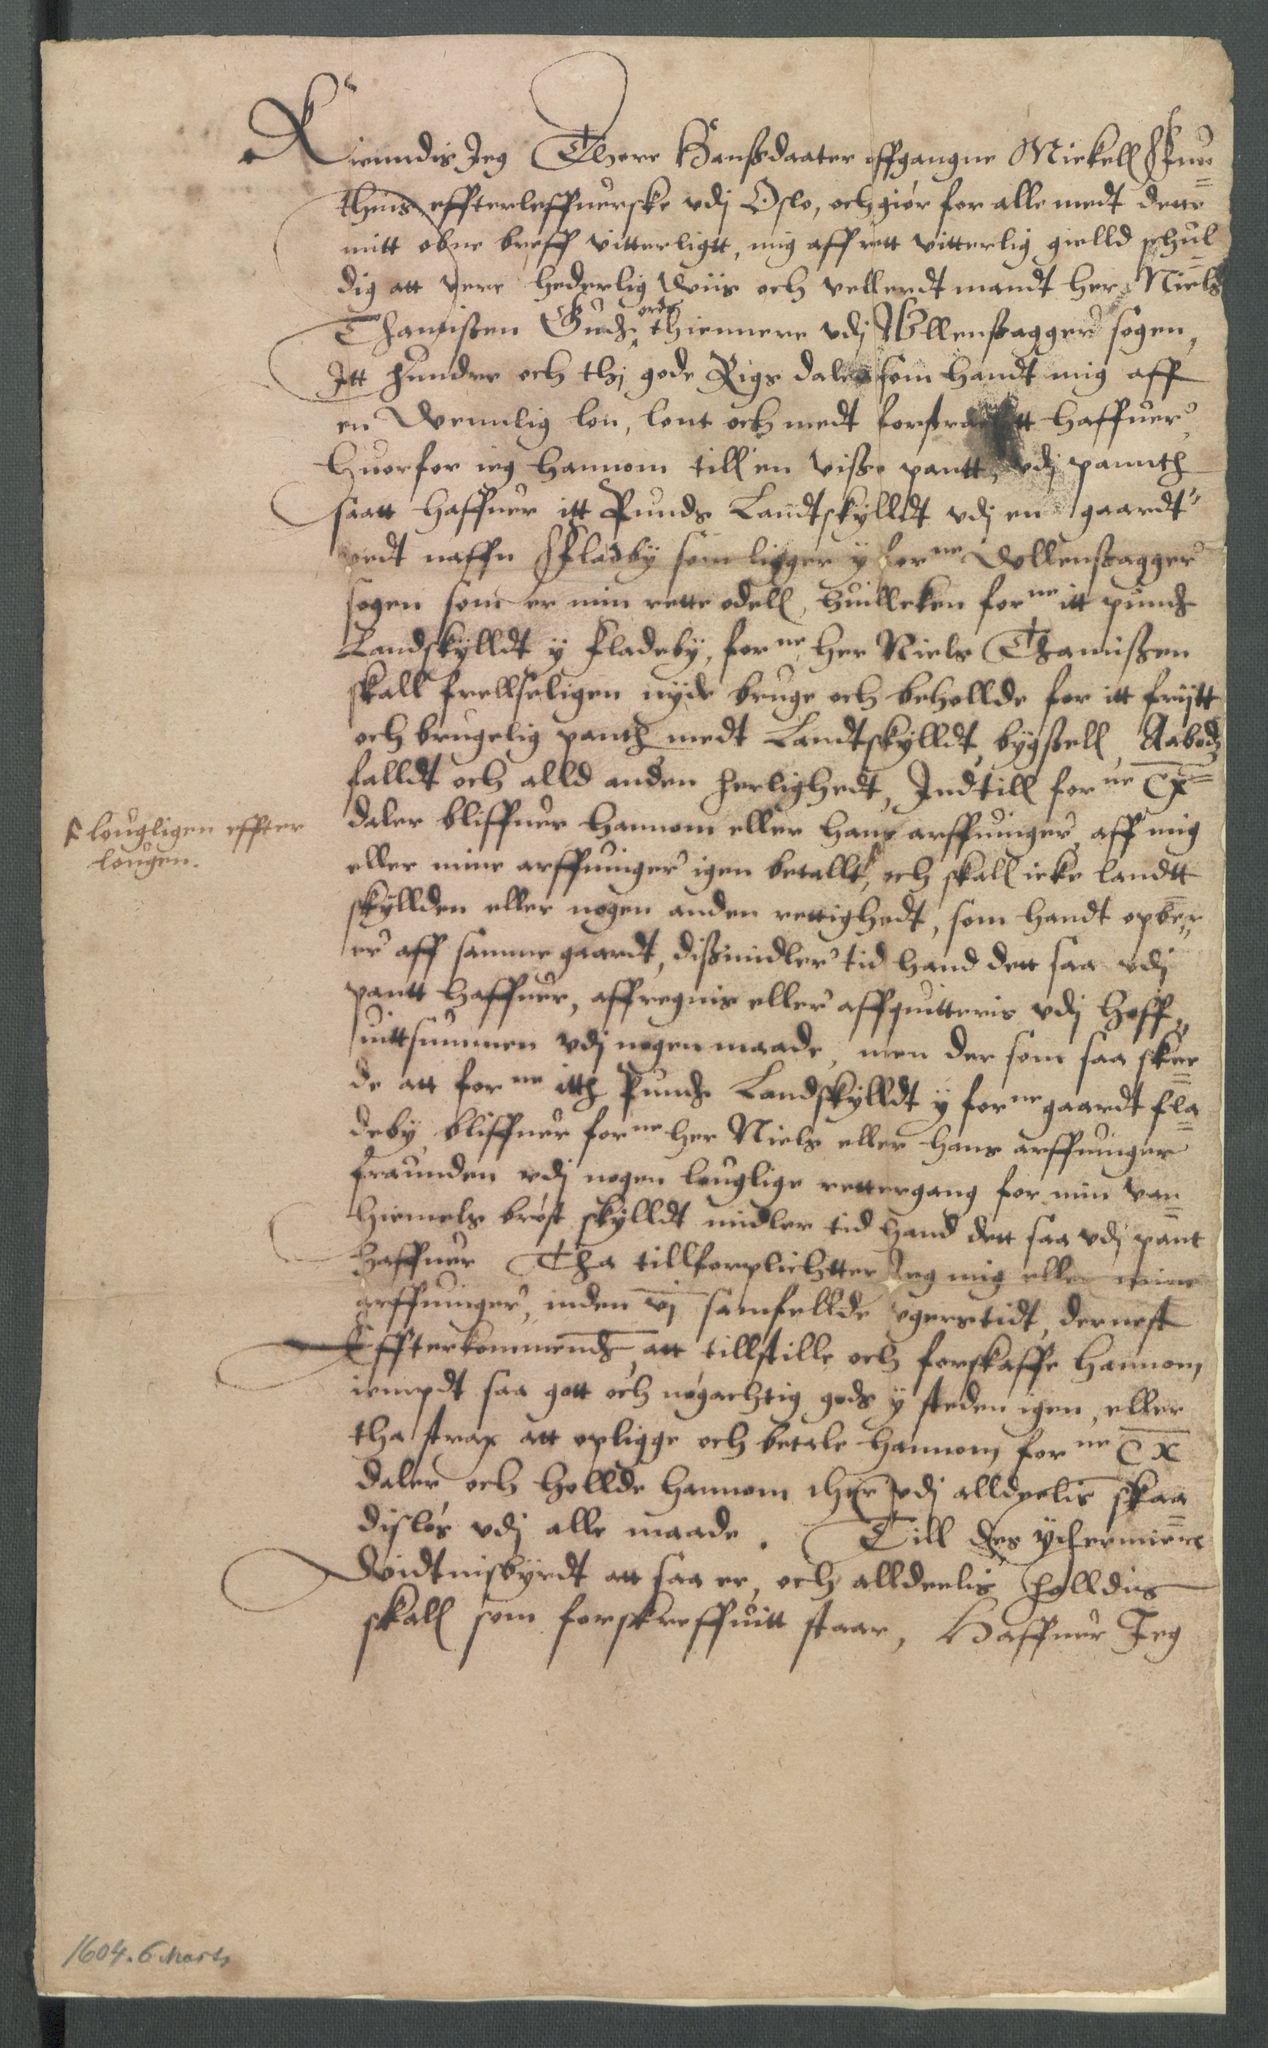 Kienndis Jeg Thore Hanssdaater affgangne Mickell Knu=
thins effterleffuerske vdj Oslo, och giør for alle medt dette
mitt obne breff vitterligtt, mig aff rett vitterlig gielld schul=
dig att vere hederlig Wiis och vellerdt mandt her Niels
Thamissen Gudz ords thiennere vdj Wllenssagger sogen,
Itt hundre och thj gode Rigs daler som handt mig aff
en Wennlig lon, lont och medt forstracktt haffuer,
huorfor ieg hannom till en visse pantt, vdj pannth
saatt haffuer itt Punds Landtskylldt vdj en gaardt
vedt naffn Fladby som ligger y forne Wllenssagger
sogen som er min rette odell, huilleken forne itt pundz
Landskylldt y Fladeby, forne her Niels Thamissen
skall frellseligen nyde bruge och behollde for itt friitt
och brugelig panth medt Landtskylldt, bygssell, Aabodz
falldt och alld anden herlighedt, Indtill forne Cx=
daler bliffuer hannom eller hans arffuinger, aff mig
eller mine arffuinger igen betallt, och skall icke landtt
skyllden eller nogen anden rettighedt, som handt opber=
er aff samme gaardt, dissmidler tid hand dett saa vdj
pantt haffuer, affregnis eller affquitteris vdj hoff=
uittsummen vdj nogen maade, men der som saa skee=
de att forne itth Pundz Landskylldt y forne gaardt fla=
deby bliffuer forne her Niels eller hans arffuinger
fraunden vdj nogen louglige rettergang for min van=
hiemels brøst skylldt midler tid hand dett saa vdj pant
haffuer Tha tillforplichtter Jeg mig eller mine
arffuinger, inden vj samfellde vgerstidt, dernest
Effterkommendz att tillstille och forskaffe hannom
iempdt saa gott och nøgachtig gods y steden igen, eller
tha strax att opligge och betale hannom forne Cx
daler och hollde hannom her vdj alldeelis skaa=
disløs vdj alle maade. Till des ydermiere
Widtnisbyrdt att saa er, och alldeelis holldis
skall som forskreffuitt staar, Haffuer Jeg
lougligen effter
lougen.
1604. 6 Marts